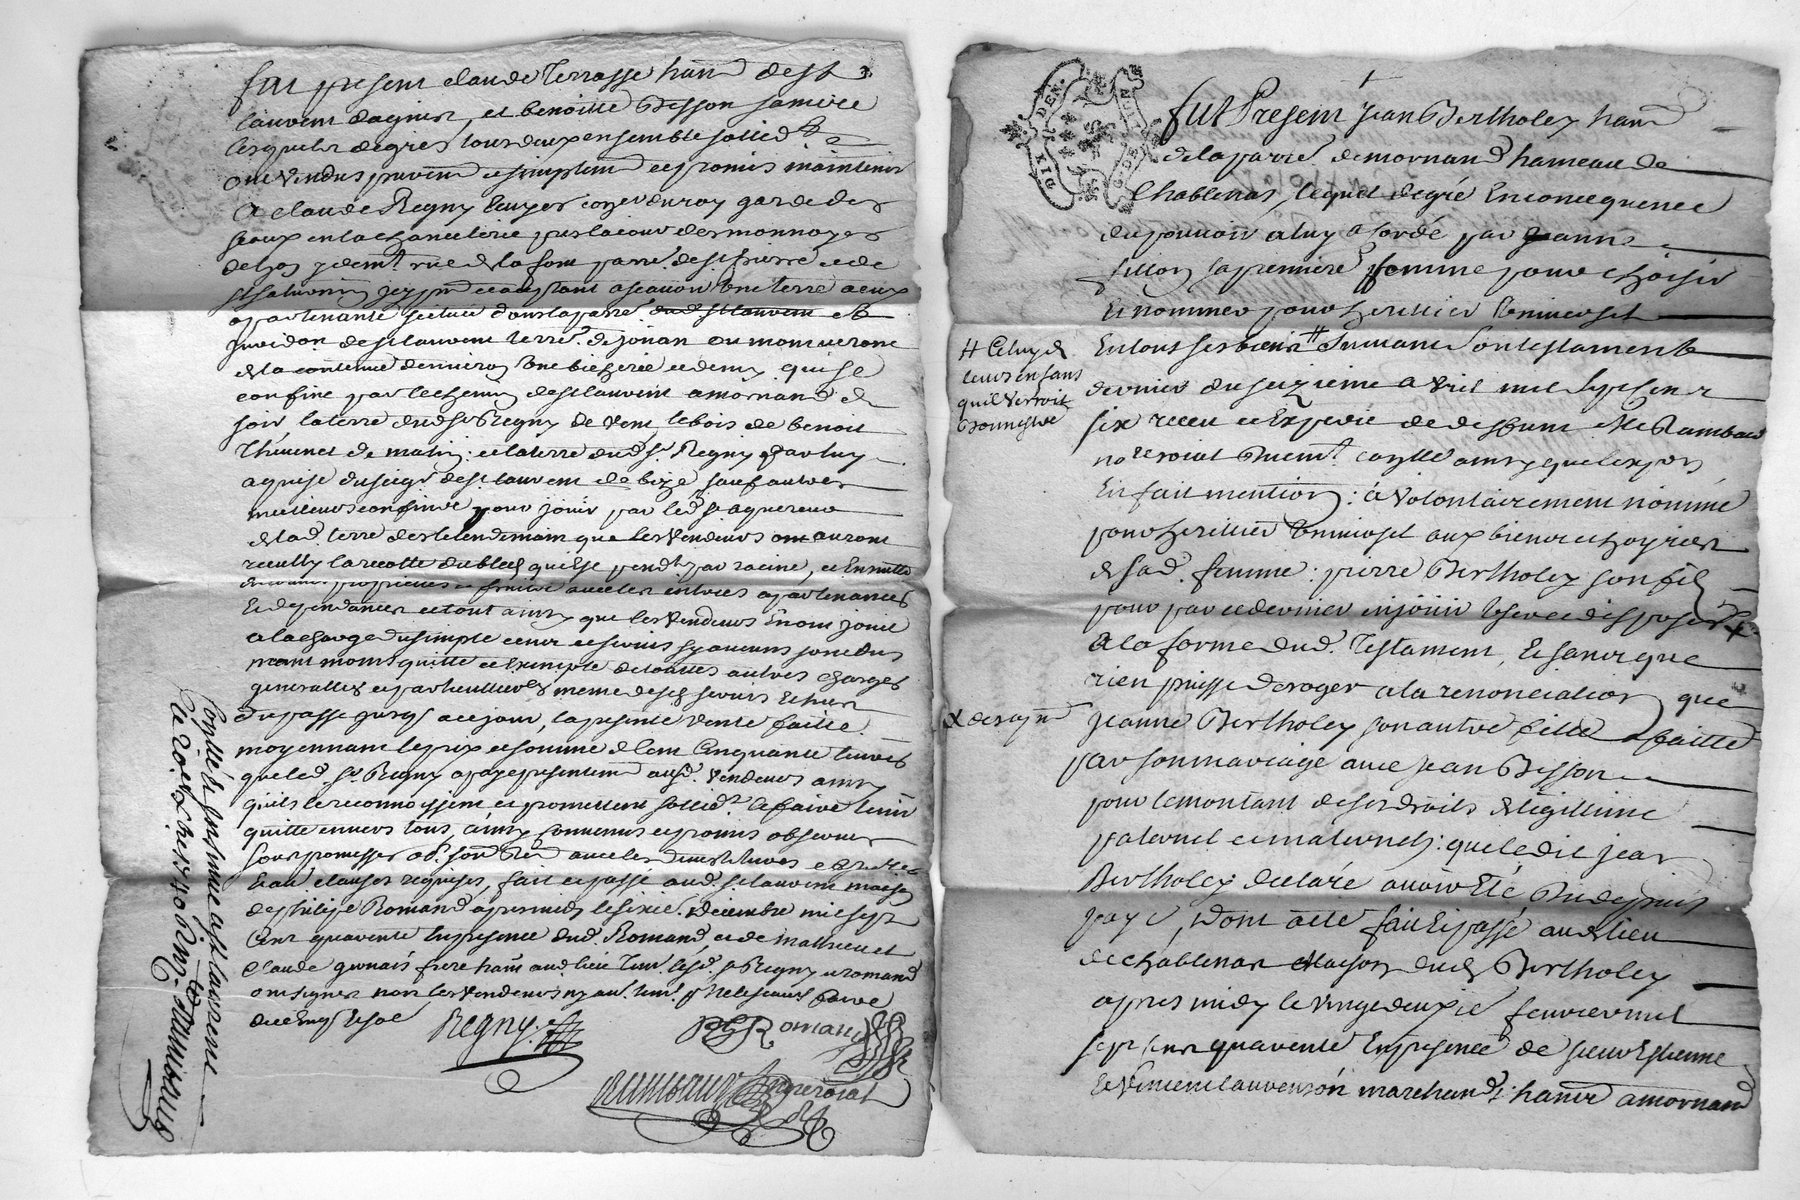 fut present claude Terrasse habt de st
laurent dagnier, et benoitte Besson sa mere
lesquels de gres tous deux ensemble sollid.t
ont vendus purem. et simplem. et promis maintenir
A claude Regny Ecuyer con.er du roy garde des
sceaux en la chancellerie pres la cour des monnoyes
de lyon y dem.t rue de la font parr. de st pierre et de
st saturnin icy p.nt et acceptant a scavoir une terre a eux
apartenante scituee dans la parr. dud. st laurent et
de st laurent terre de jouan ou montverone
de la contenue denviron une bicheree et demy qui se
confine par le chemin de st laurent a mornand de
soir la terre dud. sr Regny de vent, le bois de benoit
Thevenet de matin: et la terre dud. sr Regny par luy
aquise du seig.r de st laurent de bize sauf autres
meilleurs confins pour jouir par led. sr aquereur
de lad. terre des le lendemain que les vendeurs auront
recully la recolte du bled qui est pend.t par racine, et ensuitte
proprietes et fruits avec les entrees apartenances
et dependances et tout ainsy que les vendeurs en ont jouit
a la charge du simple cens et servis sy aucuns sont dus
neant moins quitte et exempte de touttes autres charges
generalles et particullieres meme desd. servis et cens
du passe jusq. a ce jour, la presente vente faitte
moyennant le prix et somme de cent cinquante livres
que led. sr Regny a paye presentem. ausd. vendeurs ainsy
quils le reconnoissent et promettent sollid.t le faire tenir
quitte envers tous, ainsy convenus et promis observer
sous promesses obl. soum. ren. avec les
clauses requises, fait et passé aud. st laurent maison
de philipe Romand apres midy le sixe. decembre mil sept
cent quarente En presence dud. Romand, et de mathieu et
Claude freres habt aud. lieu led. sr Regny et romand
ont signes non les vendeurs ny aut. tem. p. ne le scavoir faire
de ce enquis et so.
Regny
Romand
Rambaud no.re royal
Conttrollé Insinué a st laurent
le 1740
fut Present jean Bertholey habt
de la parre de mornand hameau de
Chablenas, lequel de gré En consequence
du pouvoir a luy acordé par jeanne
fillon sa premiere femme pour choisir
Et nommer pour heritier Universel
# Celuy de
leurs enfans
quil verroit
bon estre
En tous ses biens # Suivant son testament
dernier du seizieme avril mil sept cent
six receu et Expedie de deffunt Me Rambaud
no.re royal duem.t conttlle ainsy que lexp.on
En fait mention: a volontairement nommé
pour heritier Universel aux biens et hoyries
de sad. femme: pierre Bertholey son fils
pour par ce dernier en jouir user et disposer X
X des a p.nt
A la forme dud. Testament, Et sans que
rien puisse deroger a la renonciation que
jeanne Bertholey son autre fille a faitte
par son mariage avec jean Bisson
pour le montant de ses droits de legitime
paternel et maternel: que ledit jean
Bertholey declare avoir Eté du depuis
payé, Dont acte fait Et passé aud. lieu
de chablenas Maison dud. Bertholey
apres midy le vingt deuxie. fevrier mil
sept cent quarente En presence de sieur Estienne
Et vincent lauvenson marchand. habts a mornand
DIX DEN.
G. DE LYON